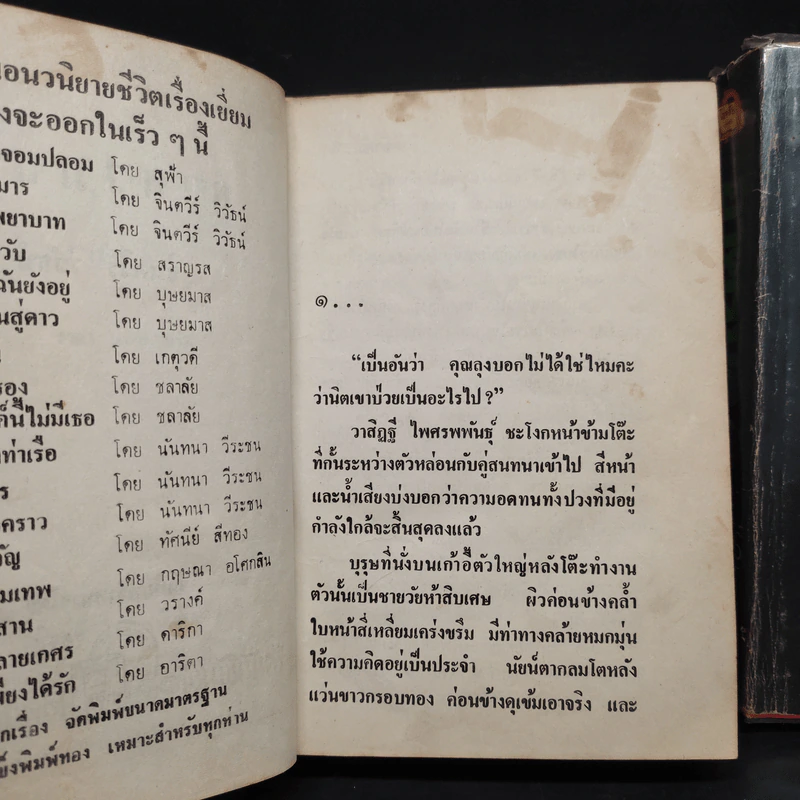 อนวนิยายชีวิตเรื่องเยี่ยม
งจะออกในเร็ว ๆ นี้
จอมปลอม โดย สุฟ้า
มาร โดย จินตวีร์ วิวัธน์
พยาบาท โดย จินตวีร์ วิวัธน์
วับ โดย สราญรส
ฉันยังอยู่ โดย บุษยมาส
นสู่ดาว โดย บุษยมาส
โดย เกตุวดี
รอง โดย ชลาลัย
ค์นี้ไม่มีเธอ โดย ชลาลัย
ท่าเรือ โดย นันทนา วีระชน
ร โดย นันทนา วีระชน
คราว โดย นันทนา วีระชน
วัญ โดย ทัศนีย์ สีทอง
มเทพ โดย กฤษณา อโศกสิน
สาน โดย วรางค์
ลายเกศร โดย ดาริกา
พียงได้รัก โดย อาริตา
กเรื่อง จัดพิมพ์ขนาดมาตรฐาน
ข็งพิมพ์ทอง เหมาะสำหรับทุกท่าน
๑...
“เป็นอันว่า คุณลุงบอกไม่ได้ใช่ไหมคะ
ว่านิตเขาป่วยเป็นอะไรไป?”
วาสิฏฐี ไพศรพพันธุ์ ชะโงกหน้าข้ามโต๊ะ
ที่กั้นระหว่างตัวหล่อนกับคู่สนทนาเข้าไป สีหน้า
และน้ำเสียงบ่งบอกว่าความอดทนทั้งปวงที่มีอยู่
กำลังใกล้จะสิ้นสุดลงแล้ว
บุรุษที่นั่งบนเก้าอี้ตัวใหญ่หลังโต๊ะทำงาน
ตัวนั้นเป็นชายวัยห้าสิบเศษ ผิวค่อนข้างคล้ำ
ใบหน้าสี่เหลี่ยมเคร่งขรึม มีท่าทางคล้ายหมกมุ่น
ใช้ความคิดอยู่เป็นประจำ นัยน์ตากลมโตหลัง
แว่นขาวกรอบทอง ค่อนข้างดุเข้มเอาจริง และ